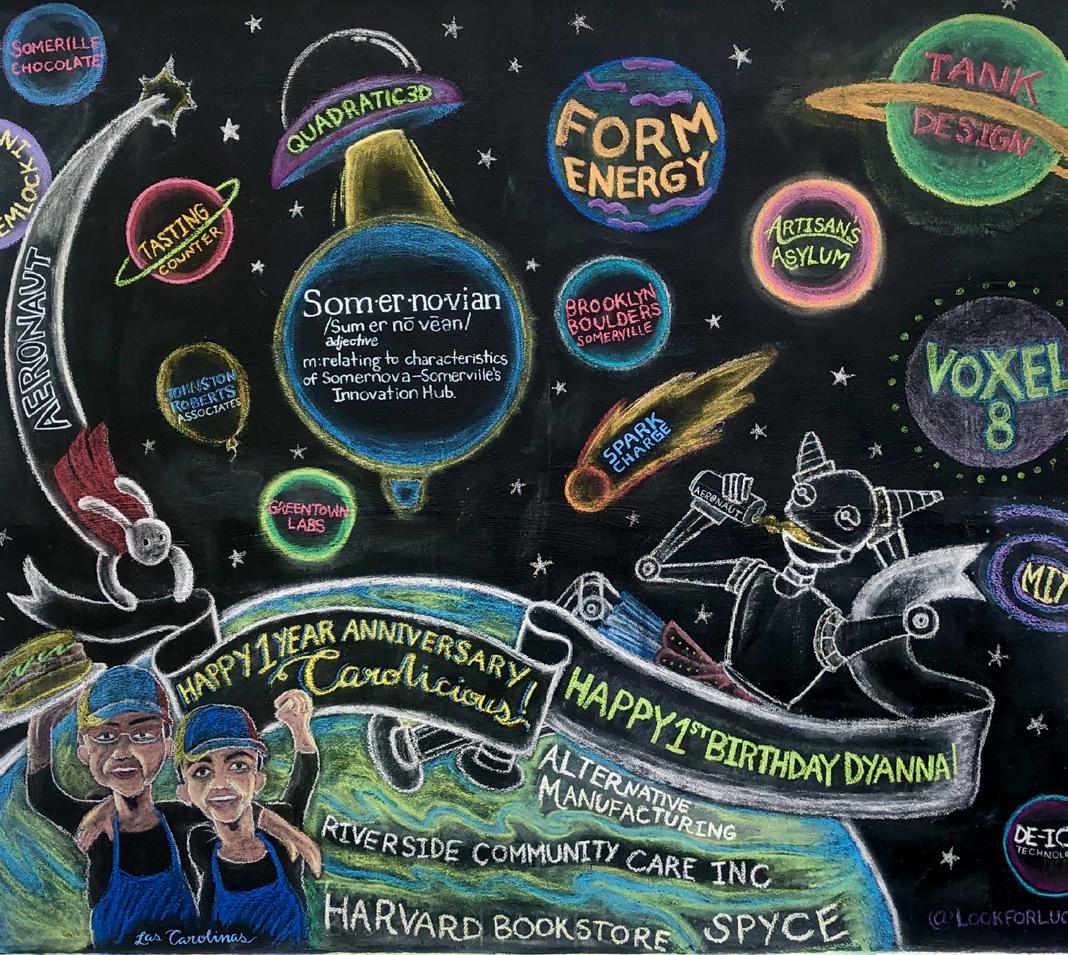 SOMERILLE
CHOCOLATE
QUADRATIC3D
FORM
ENERGY
TANK
DESIGN
TASTING
COUNTER
ARTISAN'S
ASYLUM
AERONAUT
Som·er·no·vian
/Sum er nō vēan/
adjective
m:relating to characteristics
of Somernova-Somerville's
Innovation Hub.
BROOKLYN
BOULDERS
SOMERVILLE
VOXEL
8
JOHNSTON
ROBERTS
ASSOCIATES
SPARK
CHARGE
GREENTOWN
LABS
AERONAUT
MIT
HAPPY 1 YEAR ANNIVERSARY
Carolicious!
HAPPY 1ST BIRTHDAY DYANNA!
ALTERNATIVE
MANUFACTURING
RIVERSIDE COMMUNITY CARE INC
HARVARD BOOKSTORE SPYCE
DE-IC
TECHNOL
@LOOKFORLUC
Las Carolinas